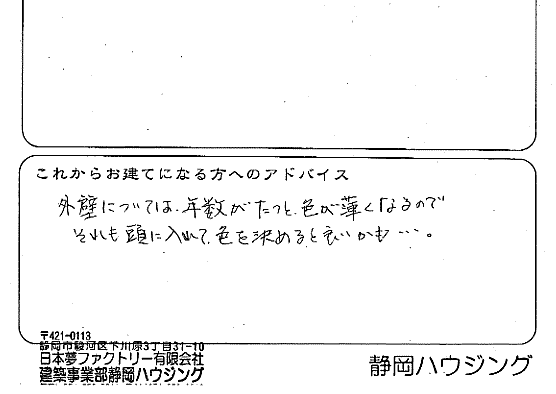 これからお建てになる方へのアドバイス
外壁については、年数がたつと、色が薄くなるので
それも頭に入れて、色を決めると良いかも…。
〒421-0113
静岡市駿河区下川原3丁目31-10
日本夢ファクトリー有限会社
建築事業部静岡ハウジング
静岡ハウジング